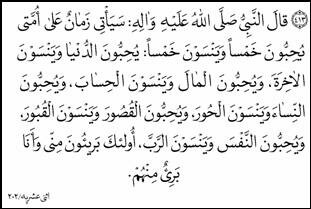 ﴿٤١٣﴾ قالَ النَّبِيُّ صَلَّى اللهُ عَلَيْهِ وَآلِهِ: سَيَأْتِي زَمَانٌ عَلَى أُمَّتِي
يُحِبُّونَ خَمْساً وَيَنْسَوْنَ خَمْساً: يُحِبُّونَ الدُّنْيا وَيَنْسَوْنَ
الْآخِرَةَ، وَيُحِبُّونَ الْمَالَ وَيَنْسَوْنَ الْحِسَابَ، وَيُحِبُّونَ
النِّسَاءَ وَيَنْسَوْنَ الْحُورَ، وَيُحِبُّونَ الْقُصُورَ وَيَنْسَوْنَ الْقُبُورَ،
وَيُحِبُّونَ النَّفْسَ وَيَنْسَوْنَ الرَّبَّ، أُولٰئِكَ بَرِيئُونَ مِنِّي وَأَنَا
بَرِيٌّ مِنْهُمْ.
اثنى عشريه/٢٠٢